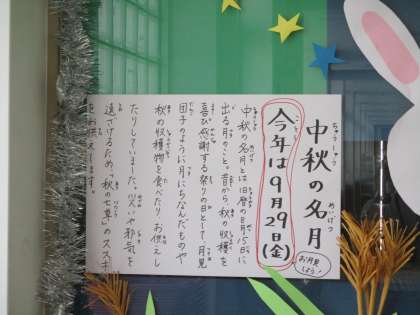 中秋の名月
ちゅうしゅう
めいげつ
お月見しよう!
今年は9月29日(金)
ことし
中秋の名月とは旧暦の8月15日に
出る月のこと。昔から、秋の収穫を
喜び感謝する祭りの日として、月見
団子のように月にちなんだものや
秋の収穫物を食べたり、お供えし
たりしてきました。災いや邪気を
遠ざけるため、「秋の七草」のススキ
をお供えします。